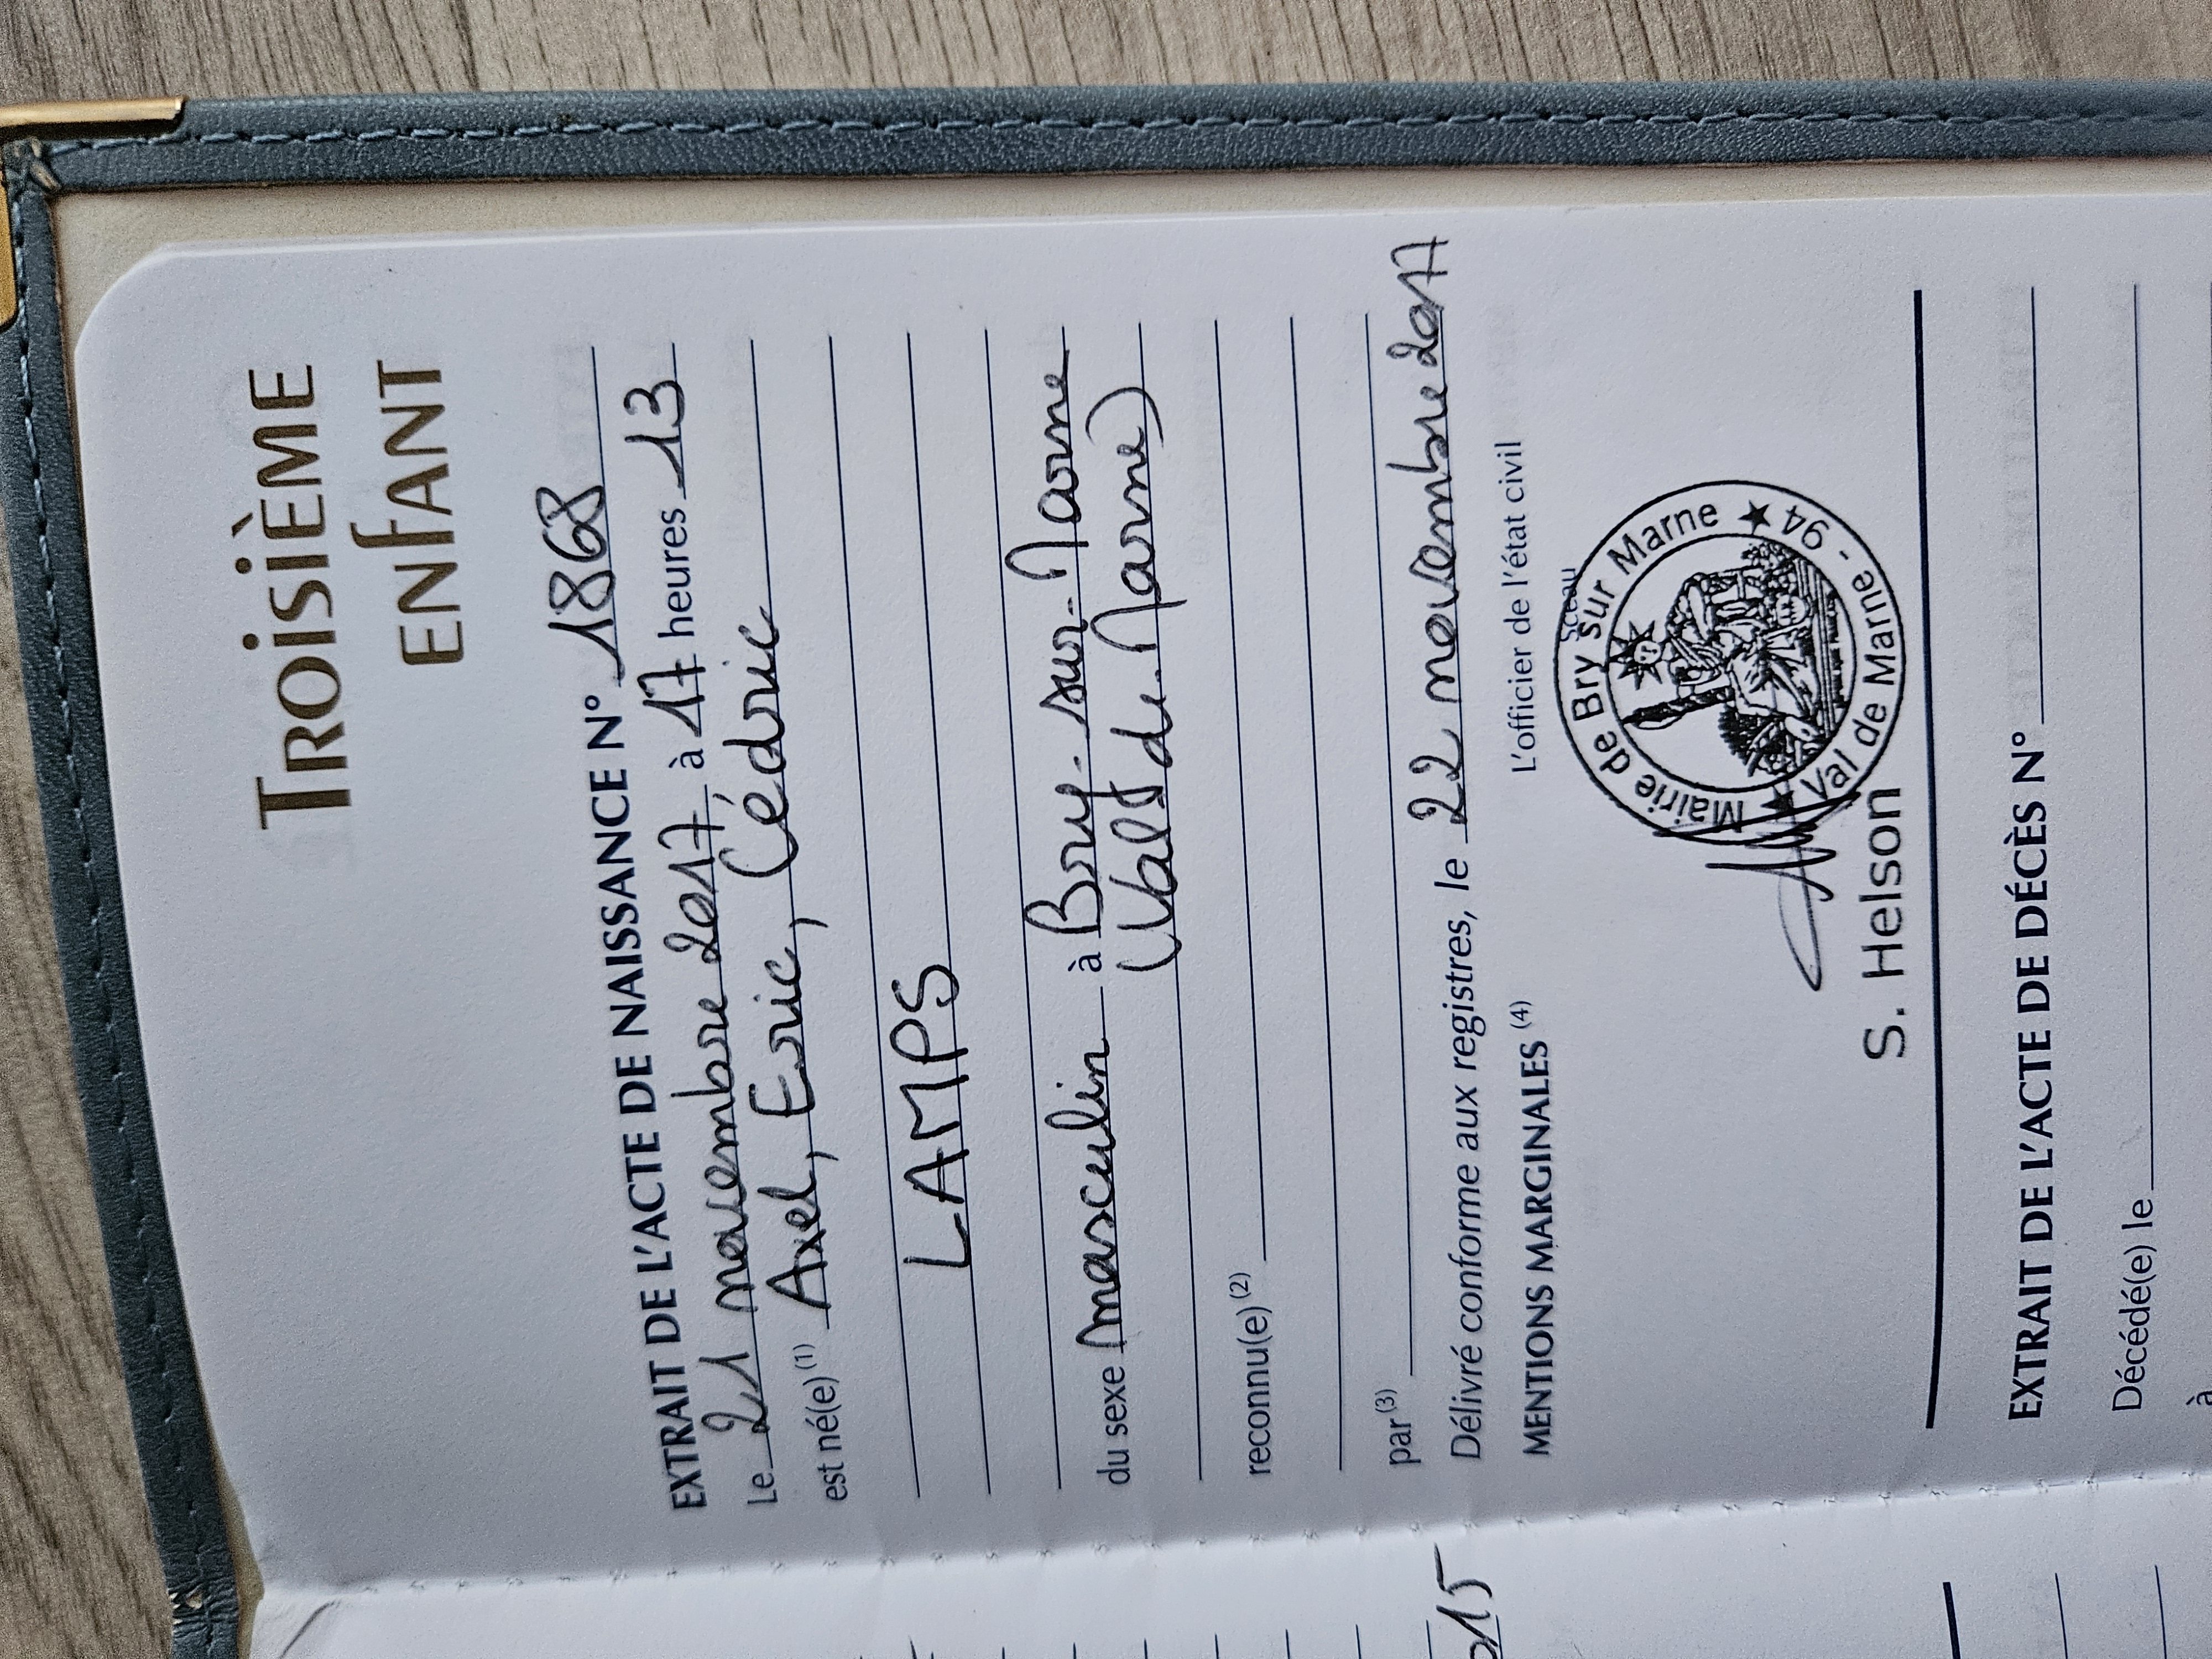 TROISIÈME
ENFANT
EXTRAIT DE L'ACTE DE NAISSANCE N° 1868
Le 21 novembre 2017 à 17 heures 13
est né(e) (1) Axel, Eric, Cédric
LAMPS
du sexe masculin à Bry-sur-Marne
(Val de Marne)
reconnu(e) (2)
par (3)
Délivré conforme aux registres, le 22 novembre 2017
MENTIONS MARGINALES (4)
L'officier de l'état civil
Sceau
Mairie de Bry sur Marne ★ Val de Marne - 94 ★
S. Helson
EXTRAIT DE L'ACTE DE DÉCÈS N°
Décédé(e) le
à
015